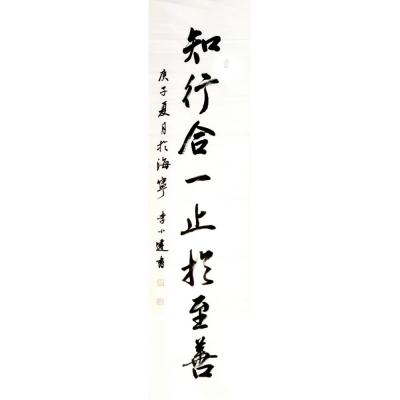 知行合一止於至善
庚子夏月於海寧 李小建書